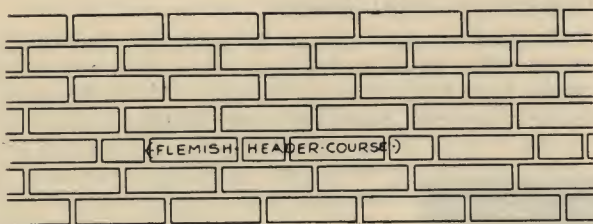 (FLEMISH HEADER-COURSE·)